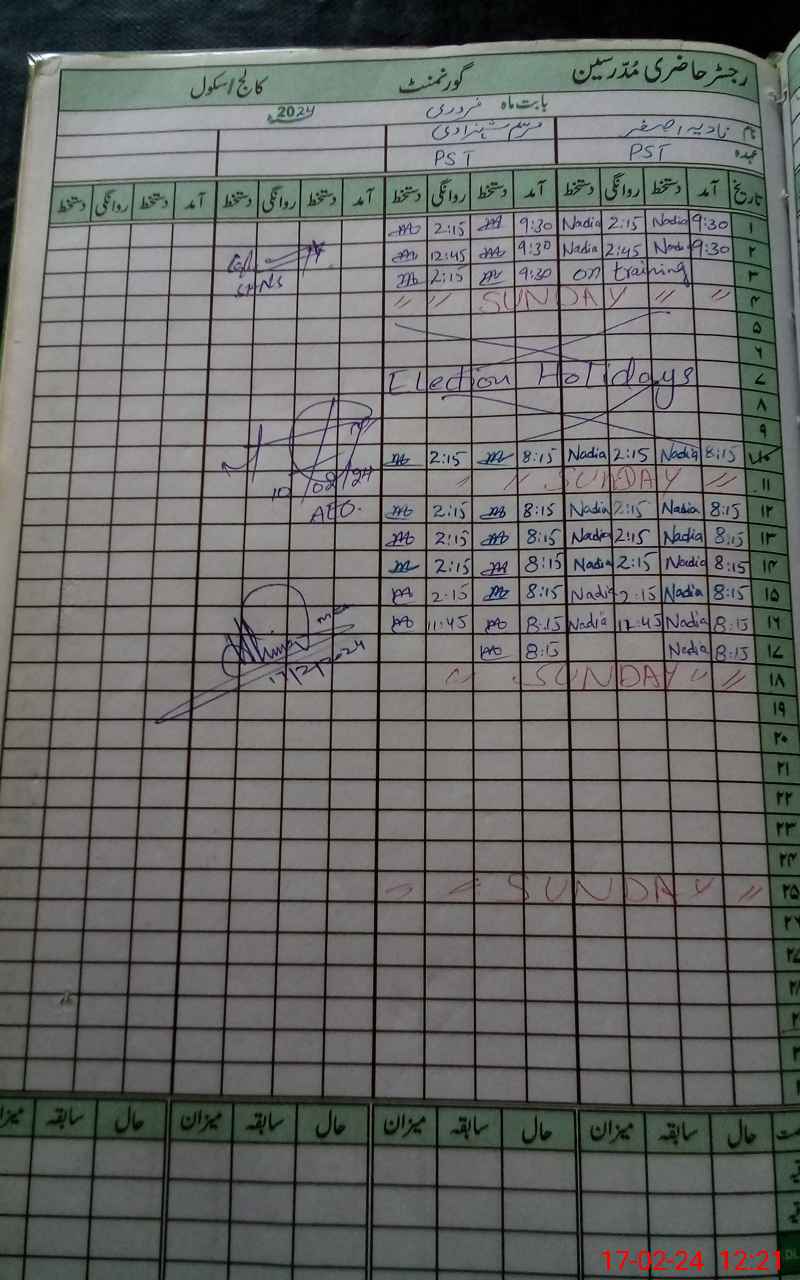 رجسٹر حاضری مُدّرسین گورنمنٹ کالج/سکول
بابت ماہ فروری 2024
نام نادیہ اصغر مریم شہزادی
عہدہ PST PST
تاریخ آمد دستخط روانگی دستخط آمد دستخط روانگی دستخط آمد دستخط روانگی دستخط آمد دستخط روانگی دستخط
۱ 9:30 Nadia 2:15 Nadia 9:30 2:15
۲ 9:30 Nadia 2:45 Nadia 9:30 12:45
۳ on training 9:30 2:15
۴ " " SUNDAY " "
۵
۶
۷ Election Holidays
۸
۹
۱۰ 8:15 Nadia 2:15 Nadia 8:15 2:15
10/02/24
۱۱ " " SUNDAY "
AEO.
۱۲ 8:15 Nadia 2:15 Nadia 8:15 2:15
۱۳ 8:15 Nadia 2:15 Nadia 8:15 2:15
۱۴ 8:15 Nadia 2:15 Nadia 8:15 2:15
۱۵ 8:15 Nadia 2:15 Nadia 8:15 2:15
۱۶ 8:15 Nadia 12:45 Nadia 8:15 11:45
۱۷ 8:15 Nadia 8:15
17/2/2024
۱۸ " " SUNDAY "
۱۹
۲۰
۲۱
۲۲
۲۳
۲۴
۲۵ " SUNDAY " "
۲۶
۲۷
۲۸
حال سابقہ میزان حال سابقہ میزان حال سابقہ میزان حال سابقہ
17-02-24 12:21